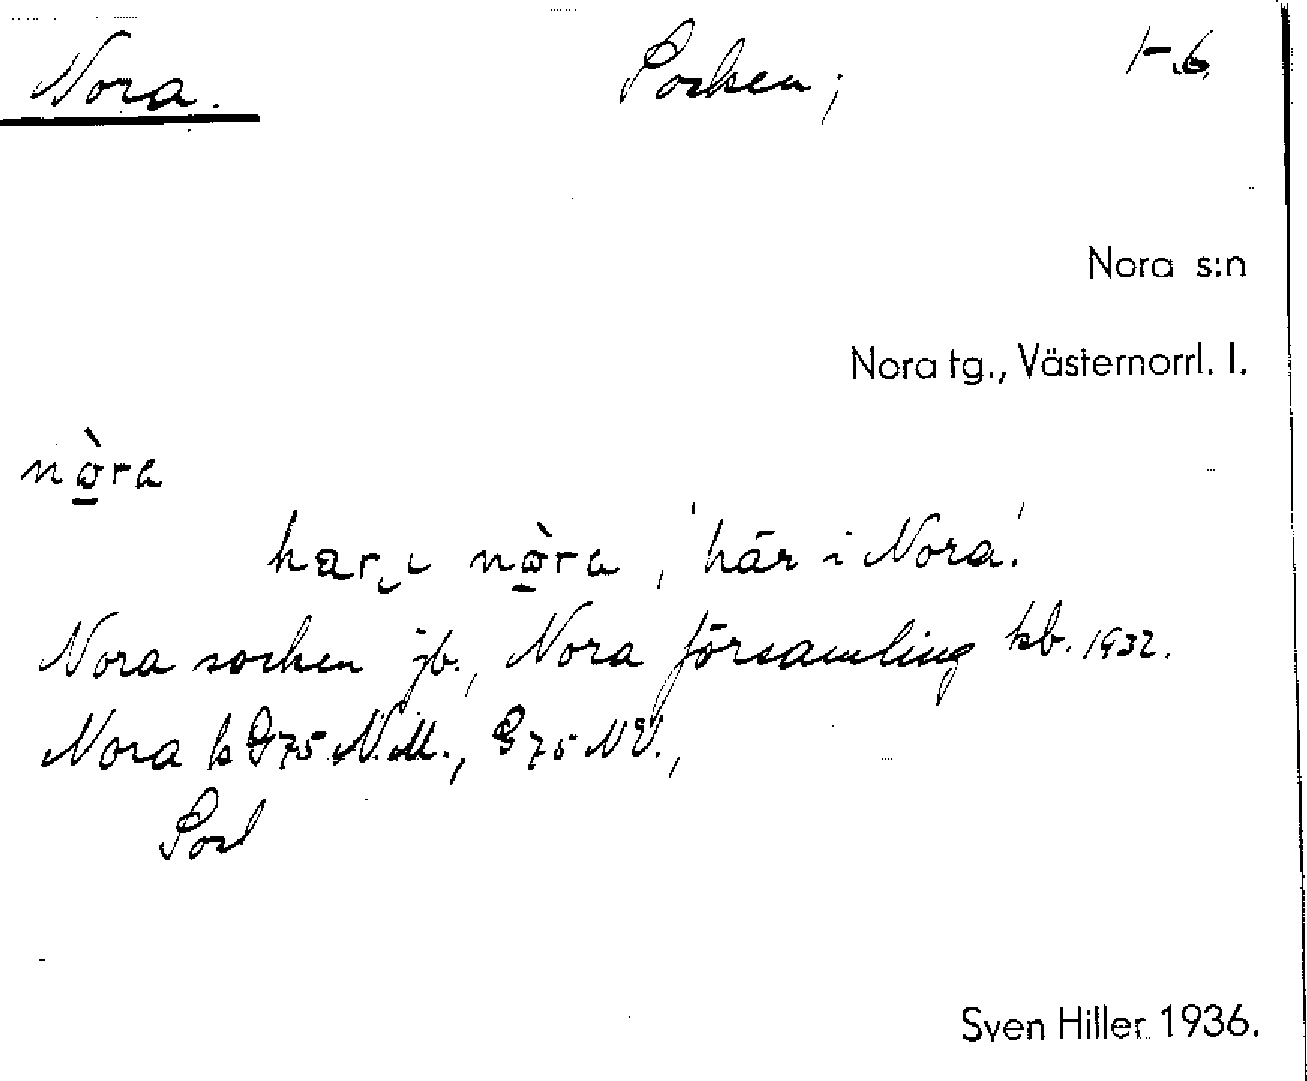 Nora. Socken; 1-6
Nora s:n
Nora tg., Västernorrl. l.
nòra
hær i nòra, 'här i Nora'.
Nora socken jb., Nora församling kb. 1932.
Nora k G75 N.M., G75 NV.,
Post
Sven Hiller 1936.